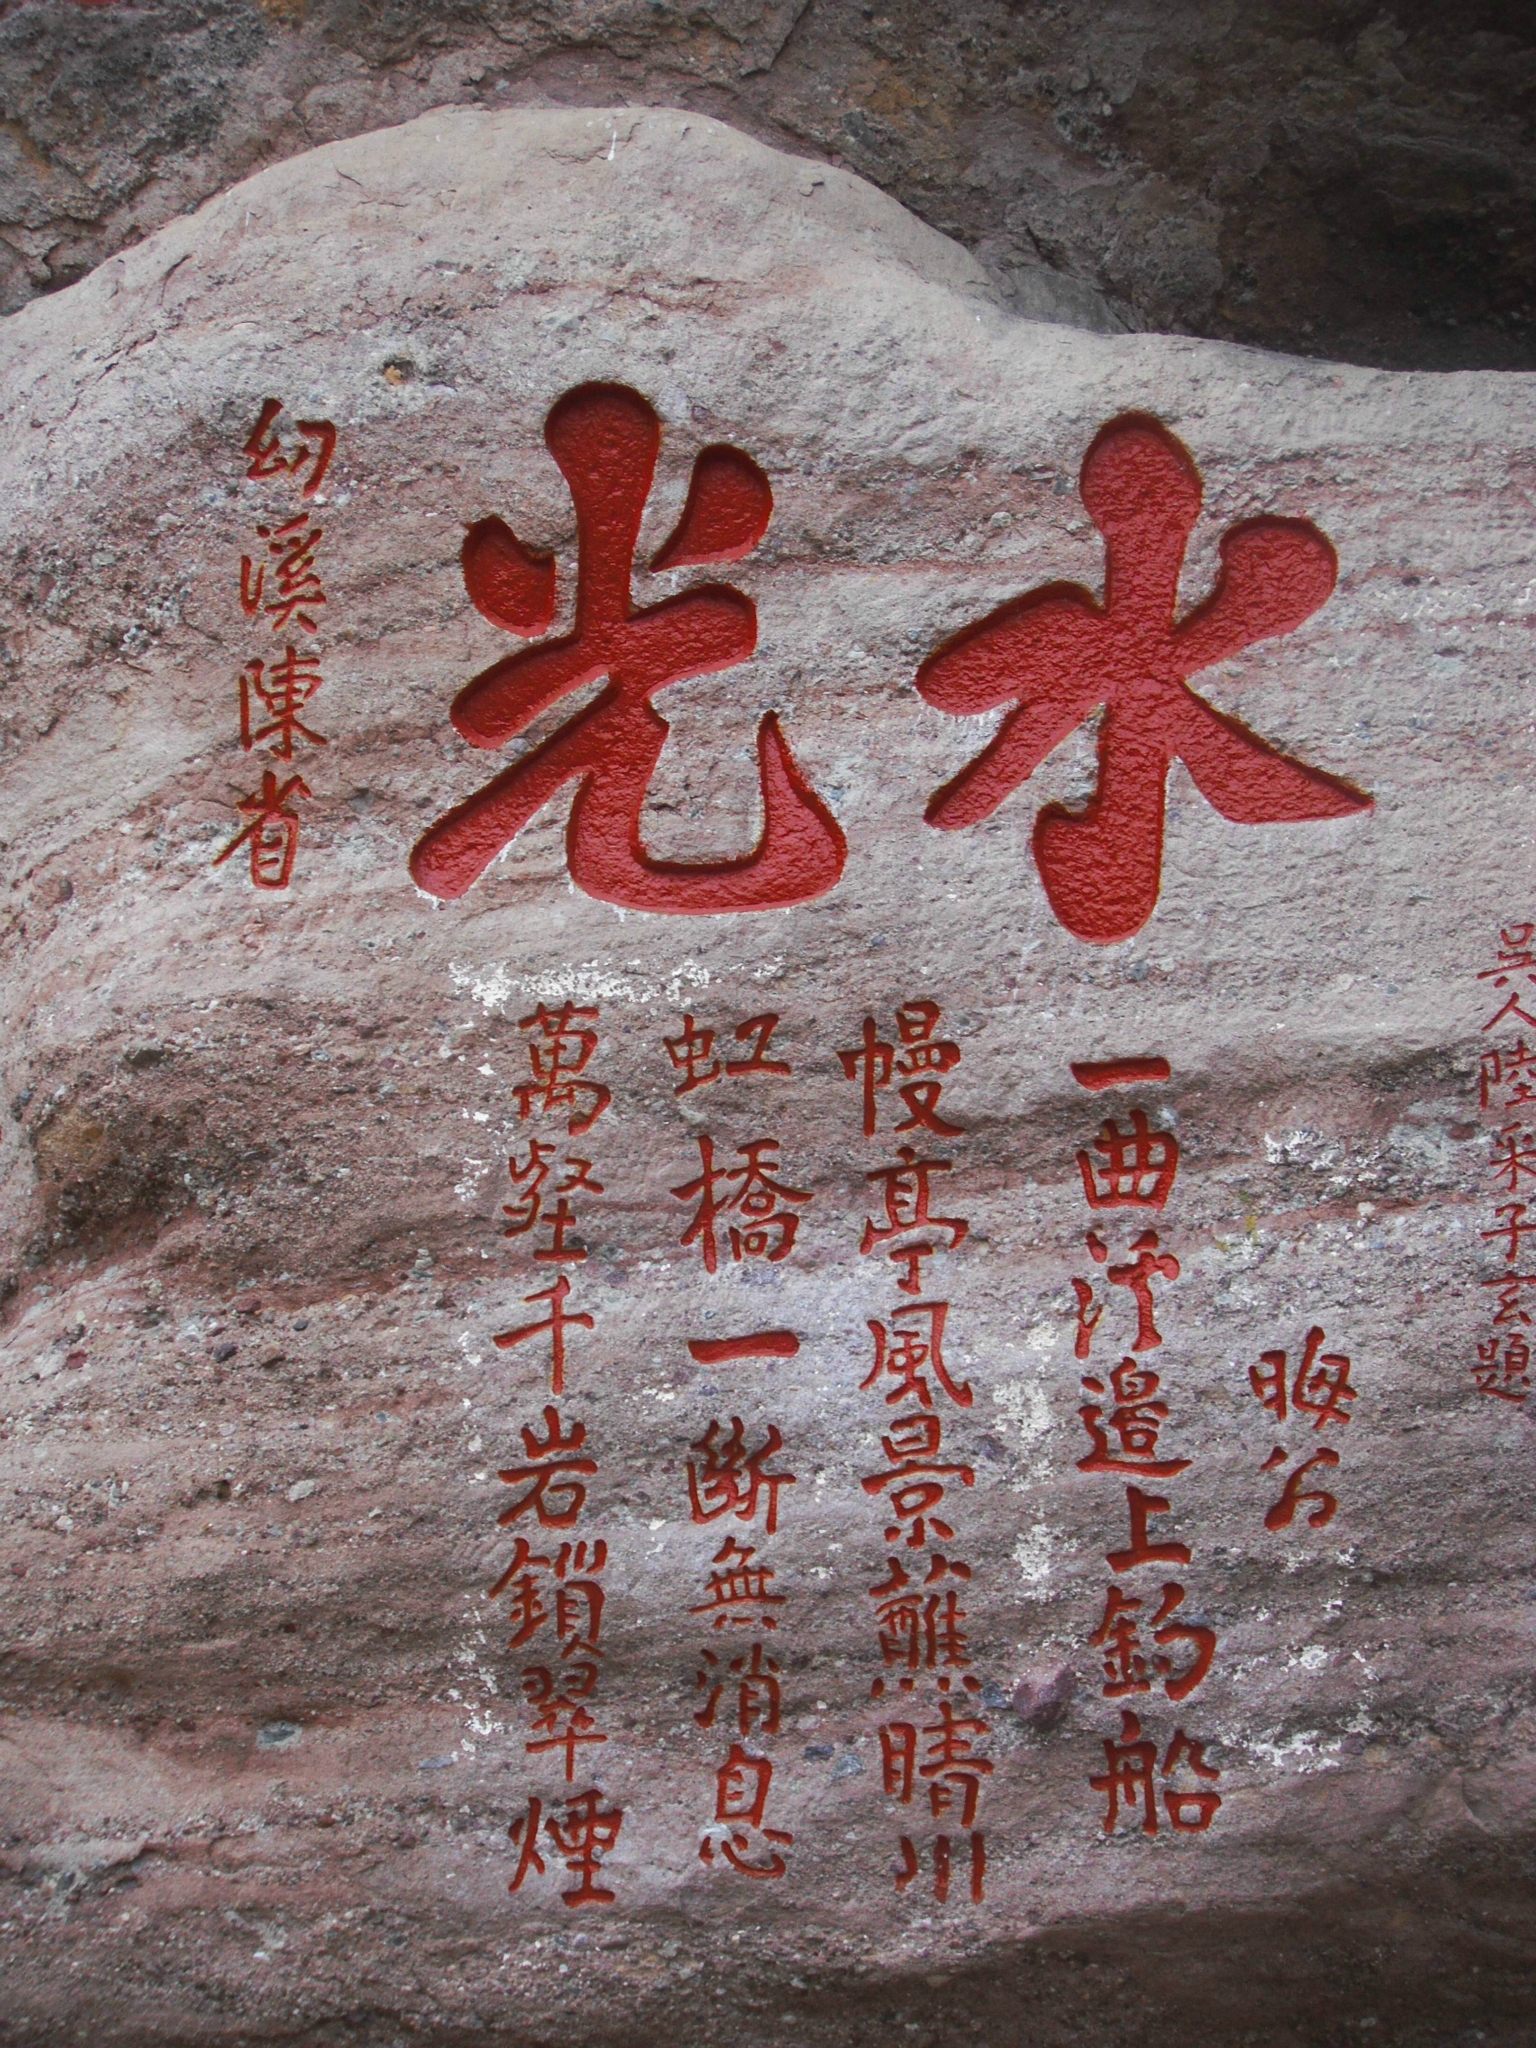 吳人陸采子玄題
水光
幻溪陳省
晦公
一曲溪邊上釣船
幔亭風景蘸晴川
虹橋一斷無消息
萬壑千岩鎖翠煙